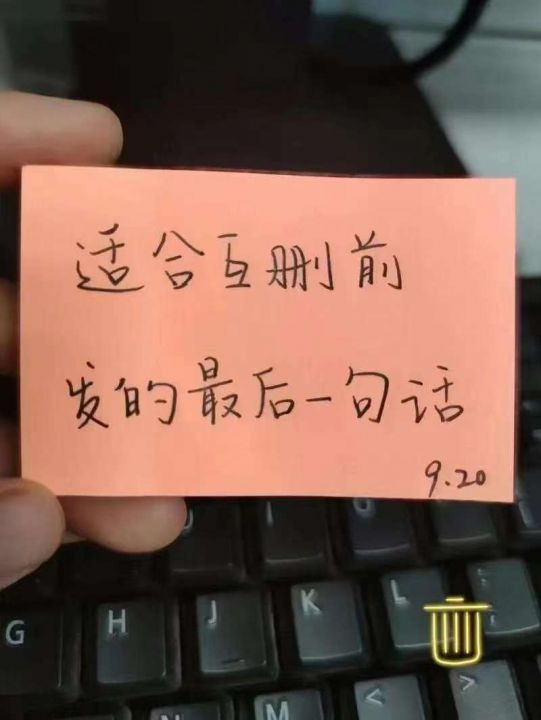 适合互删前
发的最后一句话
9.20
G
H
J
K
L
M
<
>